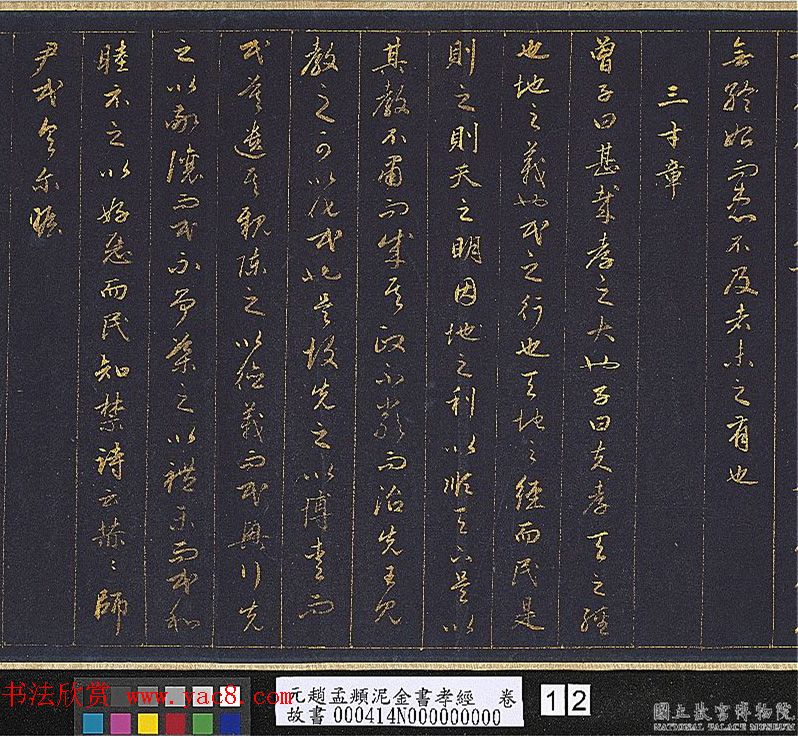 無終始而患不及者未之有也
三才章
曾子曰甚哉孝之大也子曰夫孝天之經
也地之義也民之行也天地之經而民是
則之則天之明因地之利以順天下是以
其教不肅而成其政不嚴而治先王見
教之可以化民也是故先之以博愛而
民莫遺其親陳之以德義而民興行先
之以敬讓而民不爭導之以禮樂而民和
睦示之以好惡而民知禁詩云赫〻師
尹民具爾瞻
书法欣赏 www.yac8.com
元趙孟頫泥金書孝經 卷
故書 000414N000000000
1 2
國立故宮博物院
NATIONAL PALACE MUSEUM